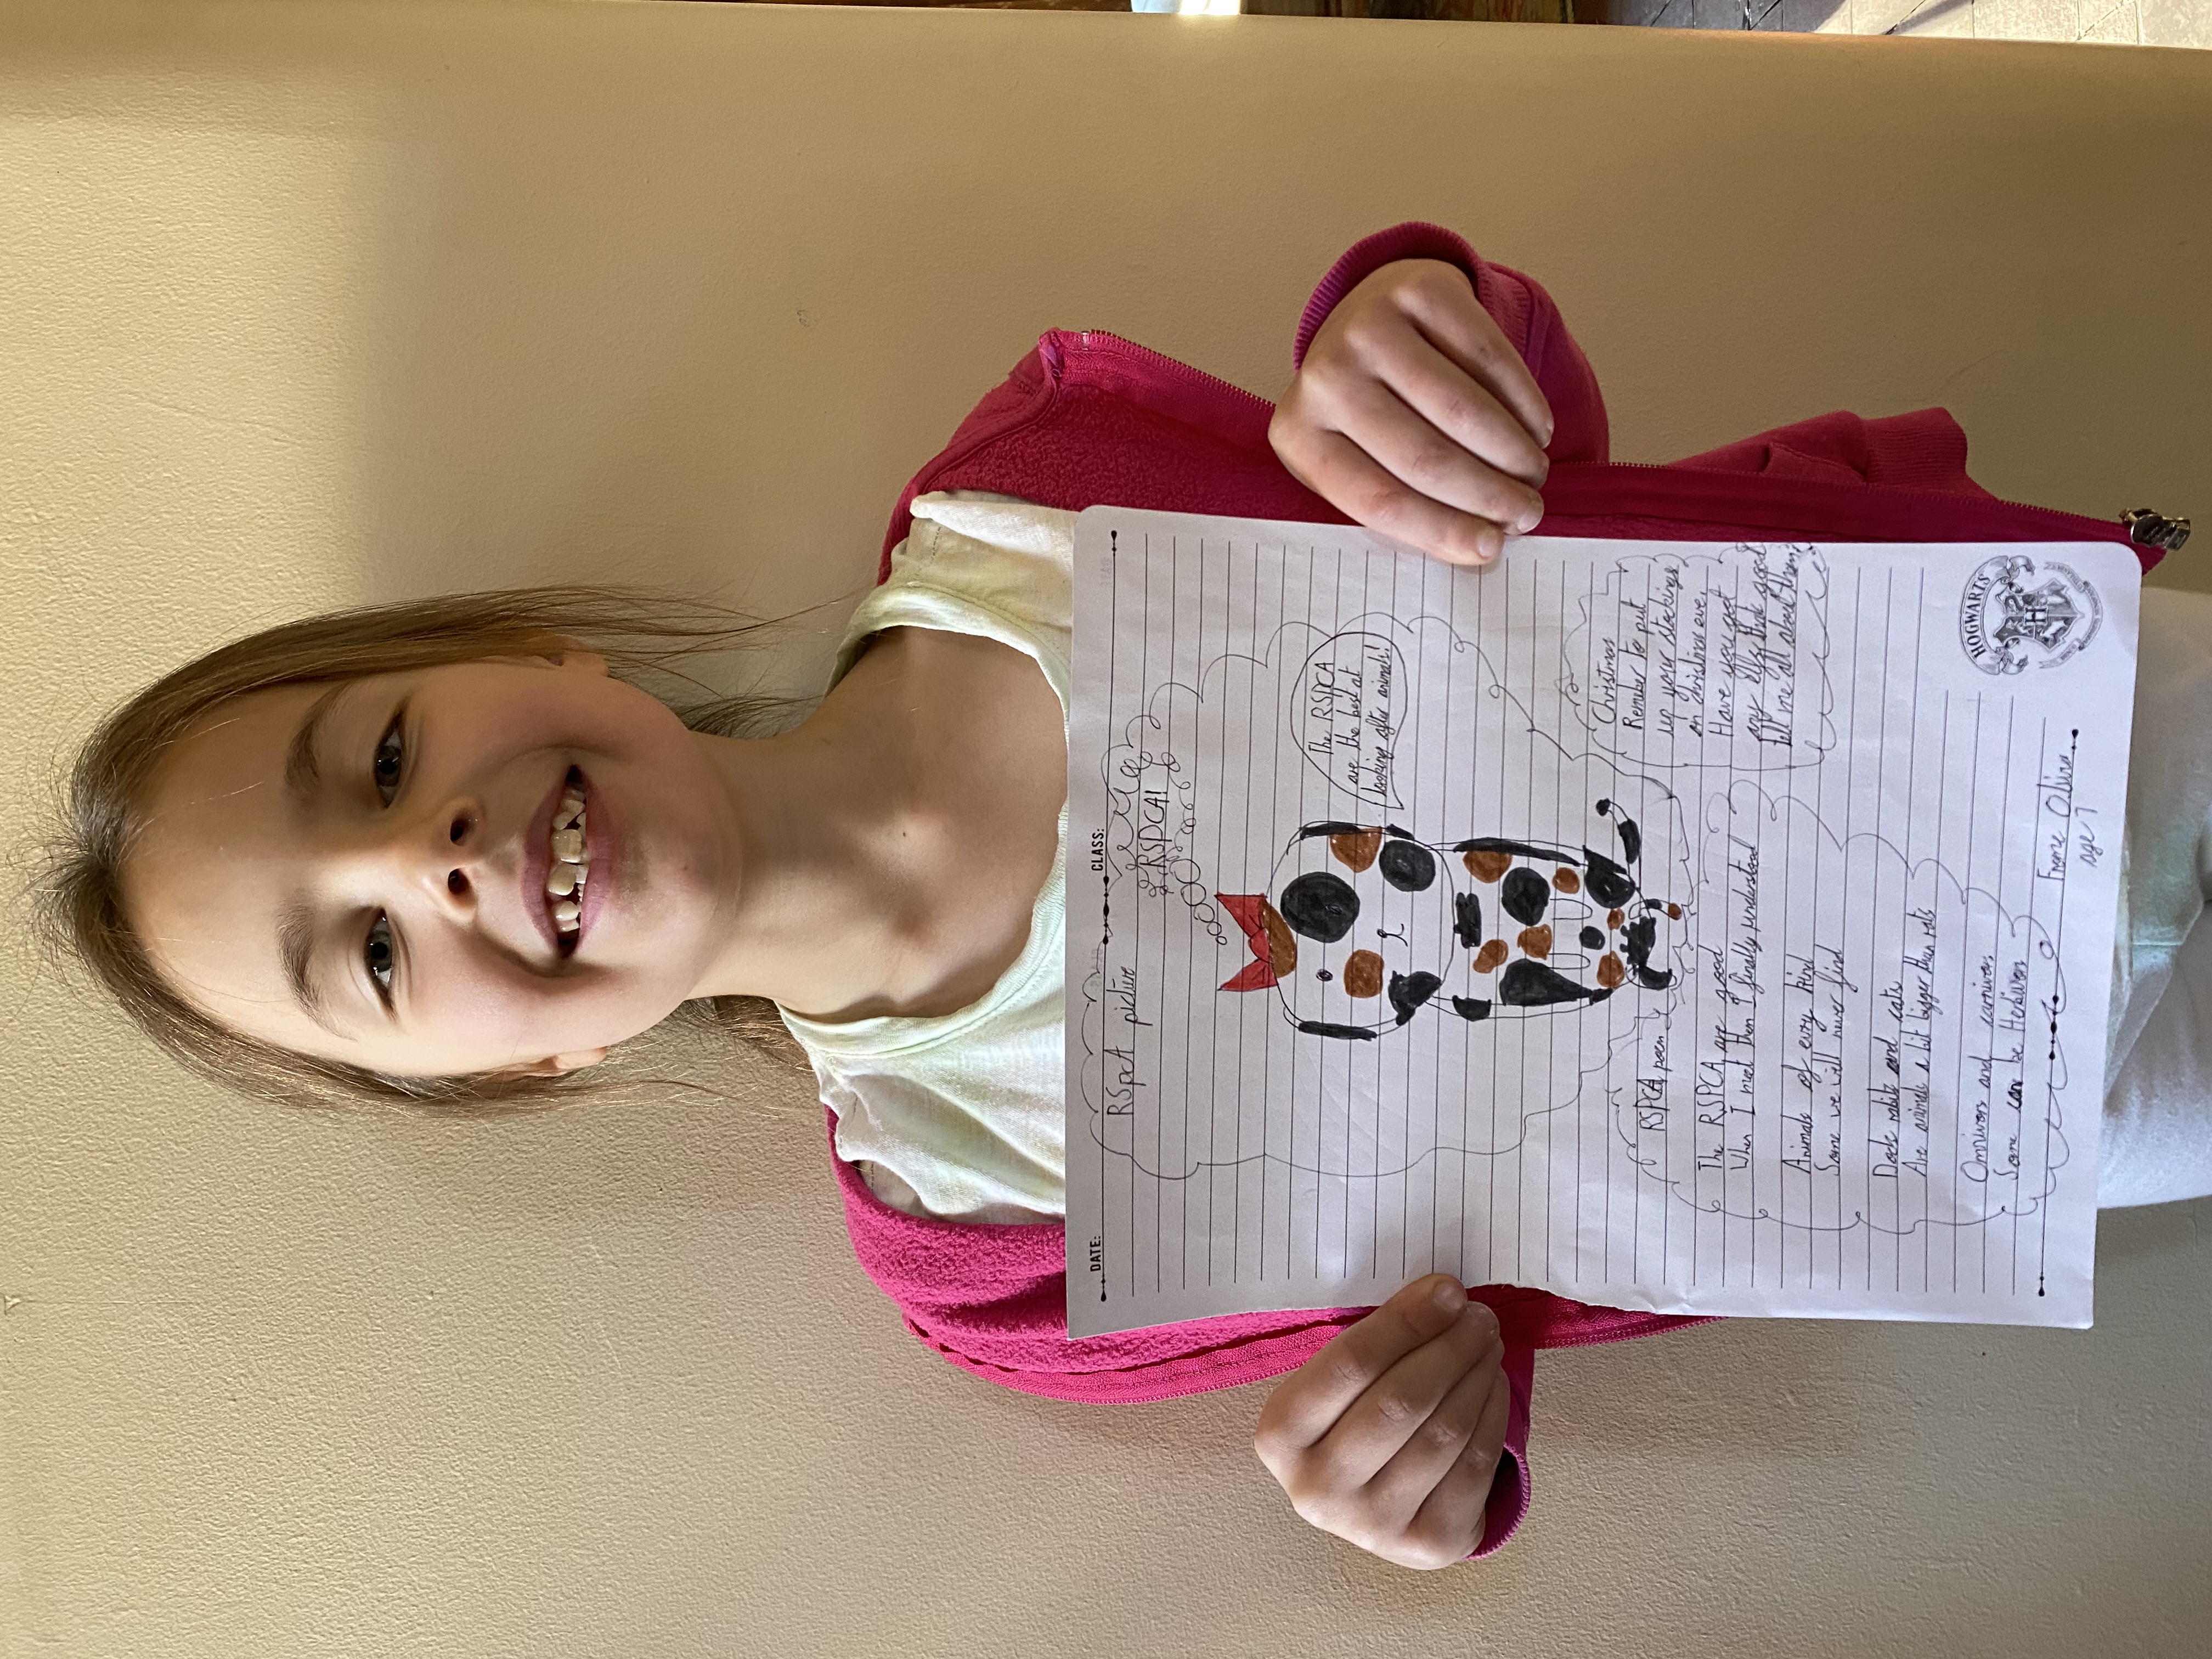 DATE:
CLASS:
RSpcA picture
RSPCA!
The RSPCA
are the best at
looking after animals!
Christmas
Remember to put
up your stockings
on christmas eve,
Have you got
any elfs
tell me all about them
RSPCA poem
The RSPCA are good
When I meet them I finally understood
Animals of every kind
Some we will never find
Dogs and cats
Are animals a bit bigger than rats
Omnivors and carnivors
Some can be Herbivors
HOGWARTS
From Olivia
age 7